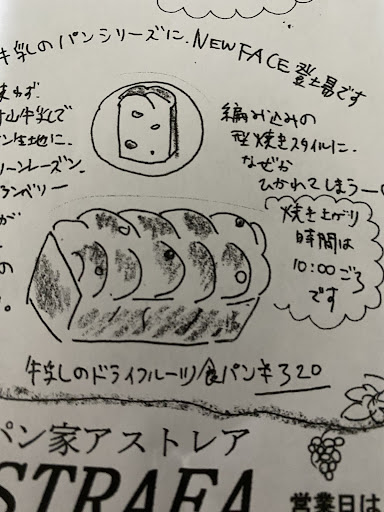 牛乳のパンシリーズに、NEW FACE 登場です
まわず、
山牛乳で
パン生地に、
リーンレーズン、
ランベリー
が
の
編み込みの
型焼きスタイルに、
なぜか
ひかれてしまうー
焼き上がり
時間は
10:00ごろ
です
牛乳のドライフルーツ食パン ¥320
パン家アストレア
STRAEA
営業日は